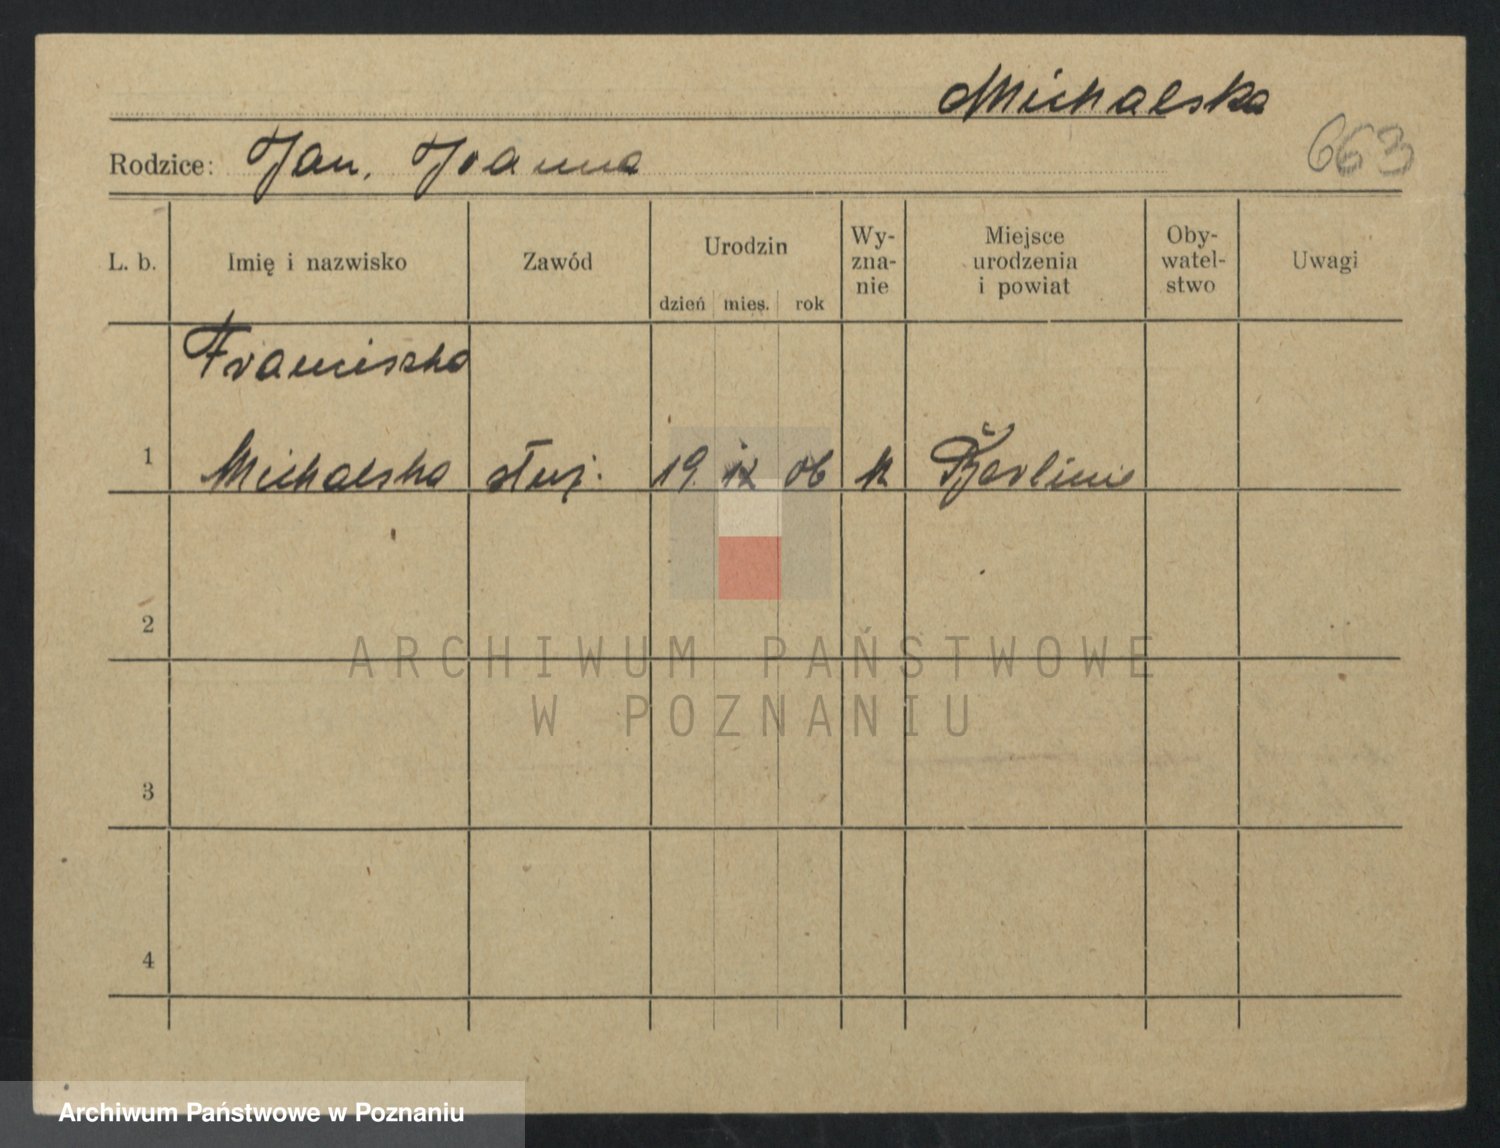 Michalska
Rodzice: Jan, Joanna
663
L. b. Imię i nazwisko Zawód Urodzin dzień mies. rok Wy-zna-nie Miejsce urodzenia i powiat Oby-watel-stwo Uwagi
Franciszka
1 Michalska służ. 19. IX 06 k
2
ARCHIWUM PAŃSTWOWE
W POZNANIU
3
4
Archiwum Państwowe w Poznaniu